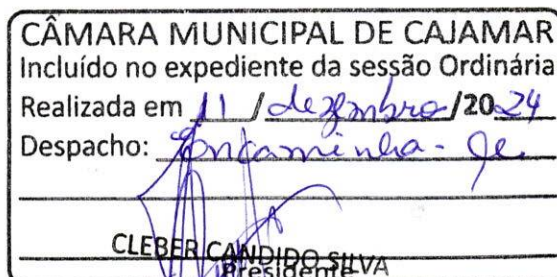 CÂMARA MUNICIPAL DE CAJAMAR
Incluído no expediente da sessão Ordinária
Realizada em 11 / dezembro /2024
Despacho: Encaminha-se.
CLEBER CANDIDO SILVA
Presidente